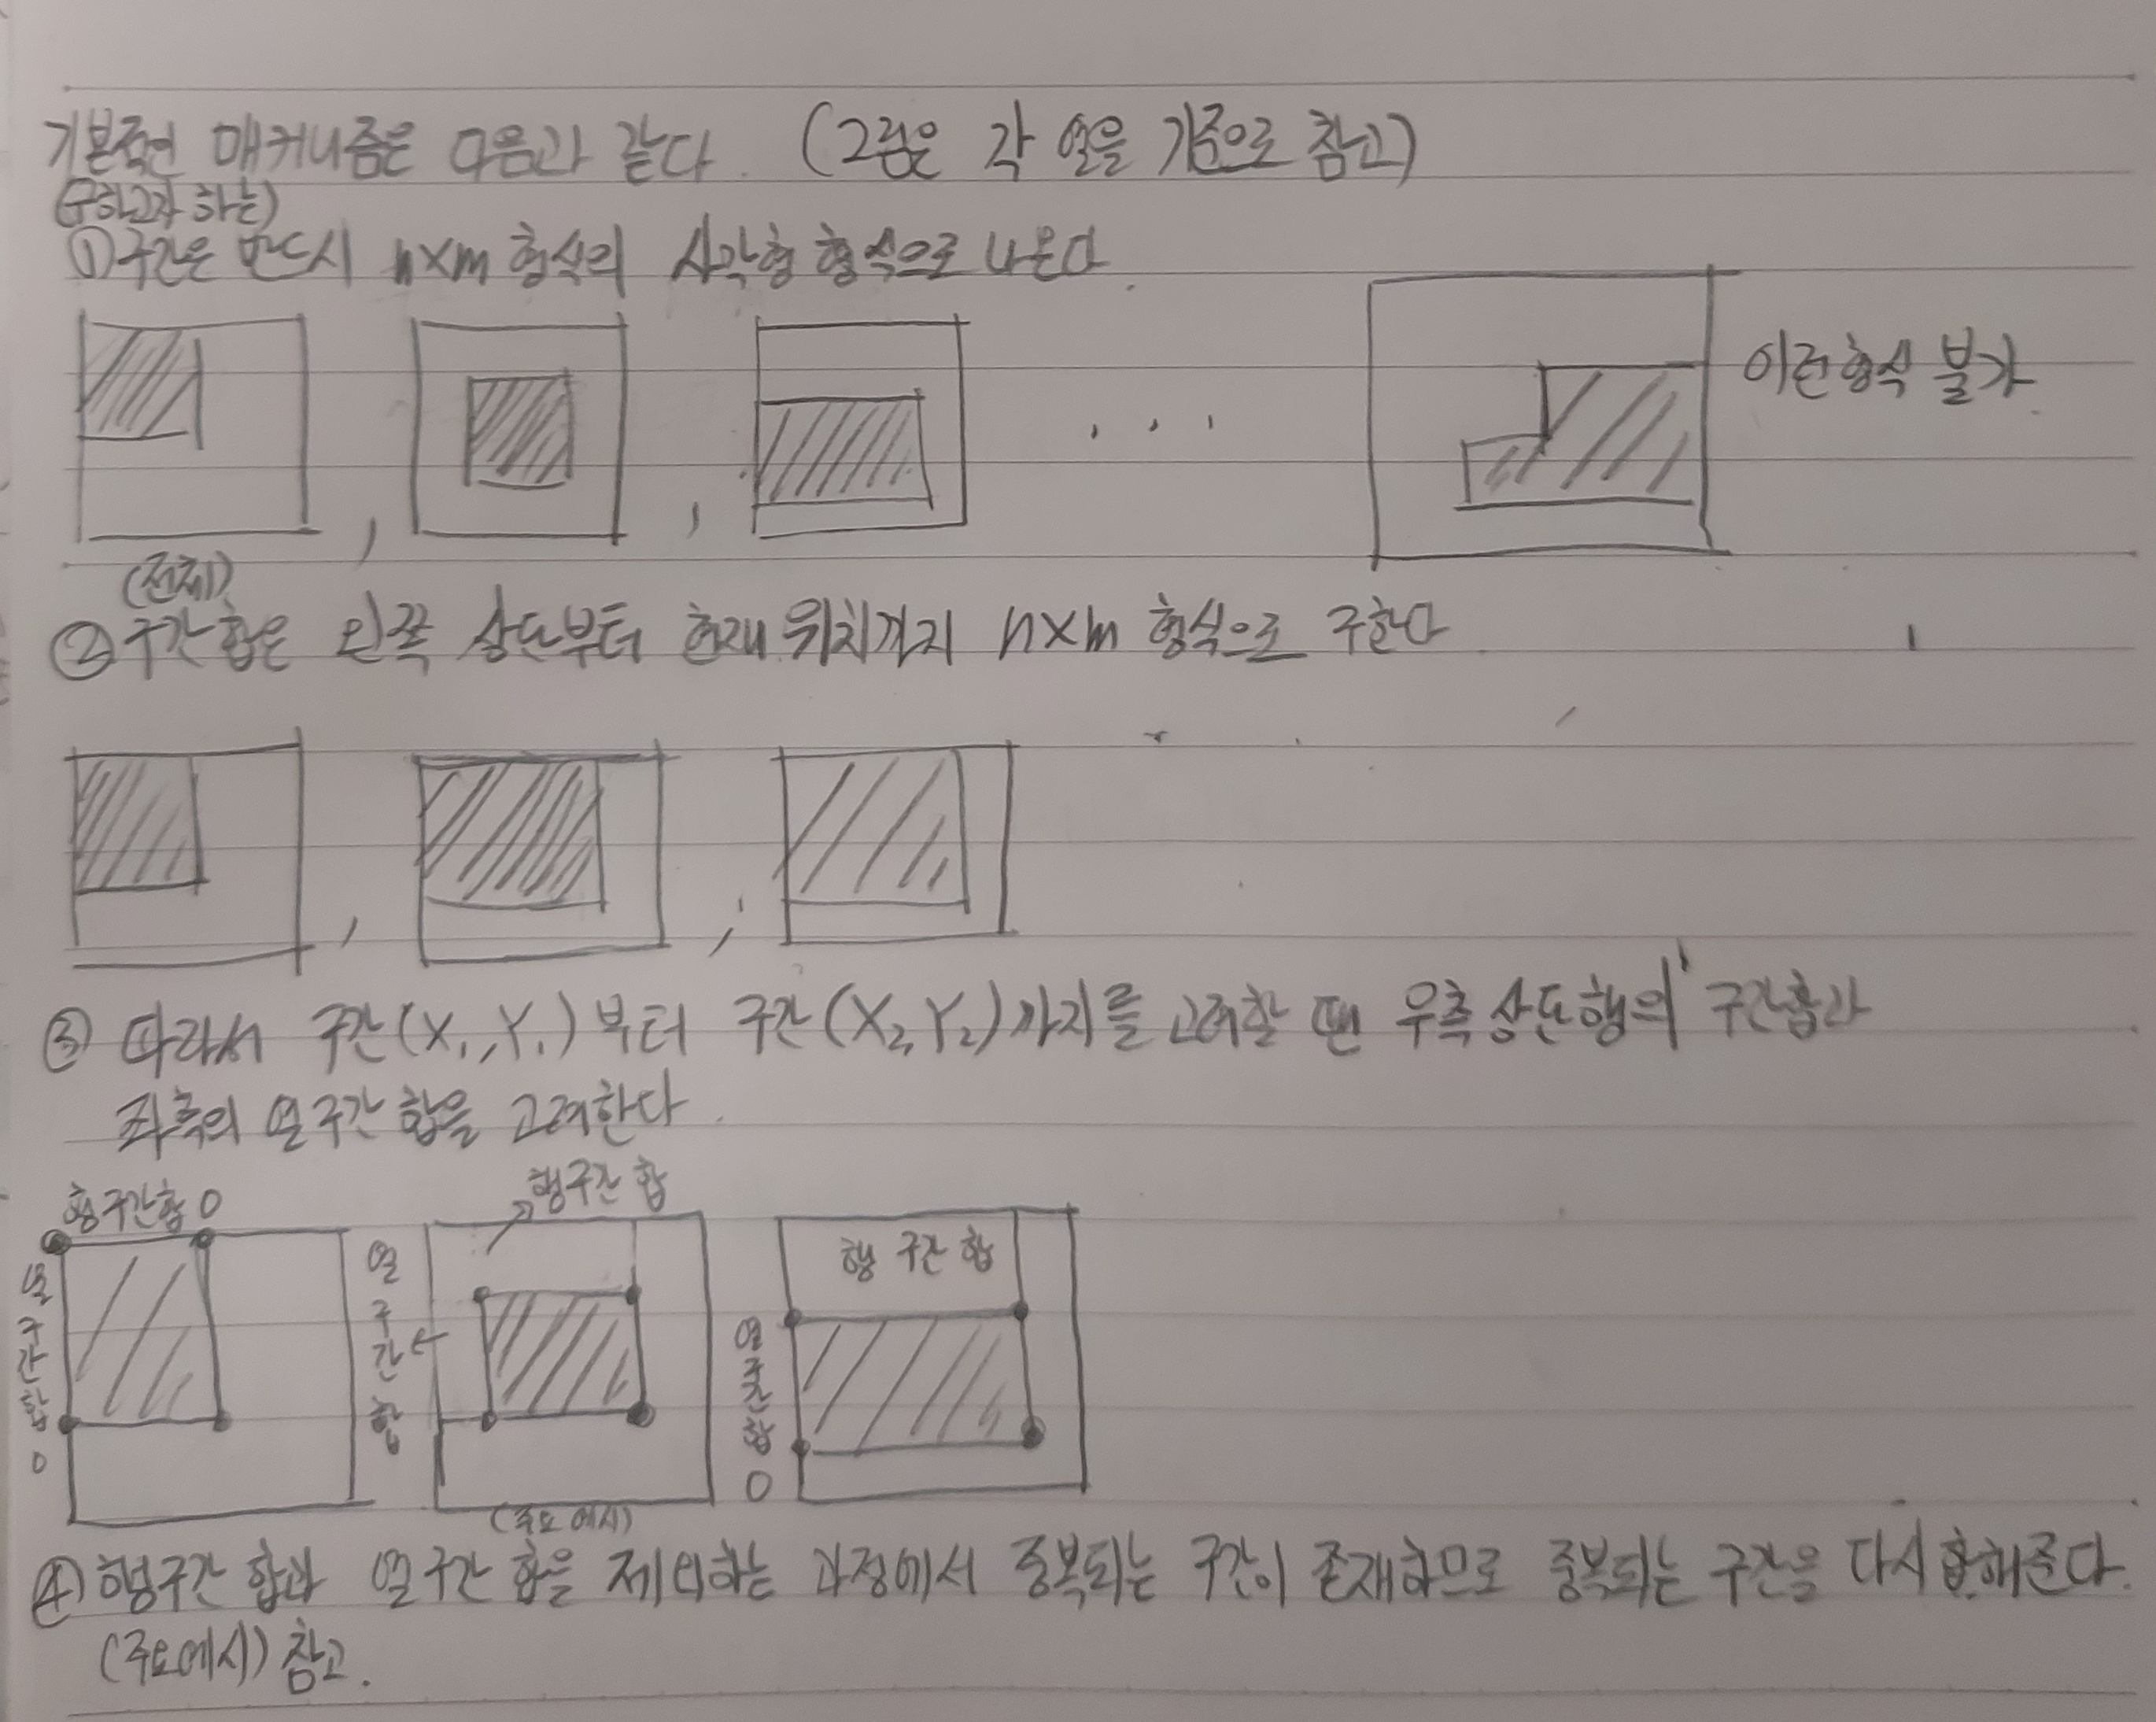 기본적인 매커니즘은 다음과 같다. (그림은 각 열을 기준으로 참고)
(구하고자 하는)
① 구간은 반드시 n×m 형식의 사각형 형식으로 나온다.
이런형식 불가
(전체)
② 구간 합은 왼쪽 상단부터 현재 위치까지 n×m 형식으로 구한다.
③ 따라서 구간(X₁, Y₁)부터 구간(X₂, Y₂)까지를 고려할 땐 우측 상단 행의 구간합과
좌측의 열 구간 합을 고려한다.
행구간합 0
열구간합 0
행구간 합
열구간합
행 구간 합
열구간합 0
(주요 예시)
④ 행구간 합과 열구간 합을 제외하는 과정에서 중복되는 구간이 존재하므로 중복되는 구간을 다시 합해준다.
(주요예시) 참고.